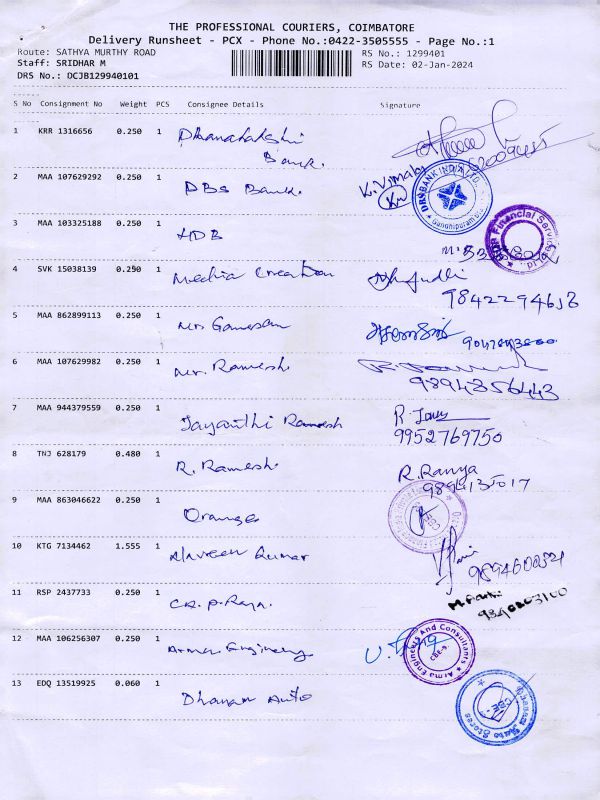 THE PROFESSIONAL COURIERS, COIMBATORE
Delivery Runsheet - PCX - Phone No.:0422-3505555 - Page No.:1
Route: SATHYA MURTHY ROAD
RS No.: 1299401
Staff: SRIDHAR M
RS Date: 02-Jan-2024
DRS No.: DCJB129940101
S No Consignment No Weight PCS Consignee Details Signature
1 KRR 1316656 0.250 1 Dhanalakshmi
Bank.
2 MAA 107629292 0.250 1 DBS Bank. K. Vimala
DBS BANK INDIA LTD. Gandhipuram
3 MAA 103325188 0.250 1 HDB
Financial Services
4 SVK 15038139 0.250 1 Media Creation
9842294613
5 MAA 862899113 0.250 1 Mr. Ganesan
6 MAA 107629982 0.250 1 Mr. Ramesh
9894856443
7 MAA 944379559 0.250 1 Jayanthi Ramesh R.
9952769750
8 TNJ 628179 0.480 1 R. Ramesh R. Ranya
9894135017
9 MAA 863046622 0.250 1 Orange
10 KTG 7134462 1.555 1 Naveen Kumar
11 RSP 2437733 0.250 1
12 MAA 106256307 0.250 1 Arma Engineers
Arma Engineers And Consultants CBE-9.
13 EDQ 13519925 0.060 1 Dhanam Auto
Dhanam Auto Stores CBE